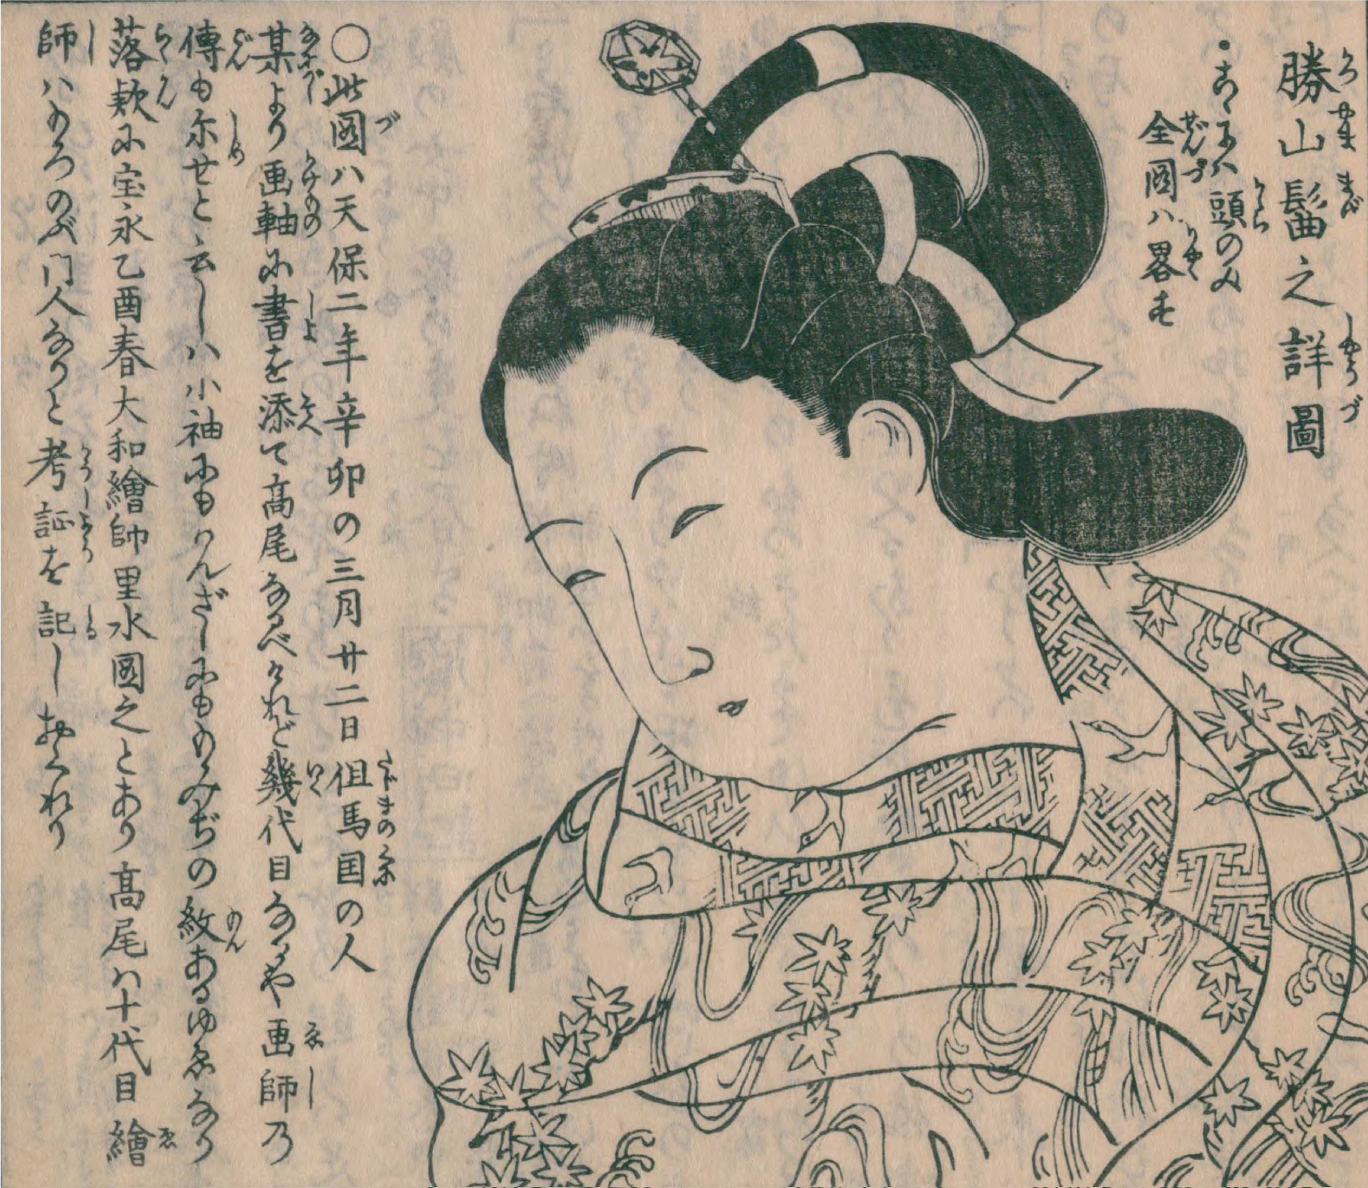 勝山髷之詳圖
・こゝには頭のみ
全圖ハ畧す
〇此圖ハ天保二年辛卯の三月廿二日但馬国の人
某より画軸に書を添て高尾なるべけれど幾代目なるや画師乃
傳も示せと云しハ小袖にもかんざしにももみぢの紋あるゆゑなり
落款に宝永乙酉春大和繪師里水圖之とあり高尾ハ十代目繪
師ハもろのぶ門人なりと考証を記しおくれり